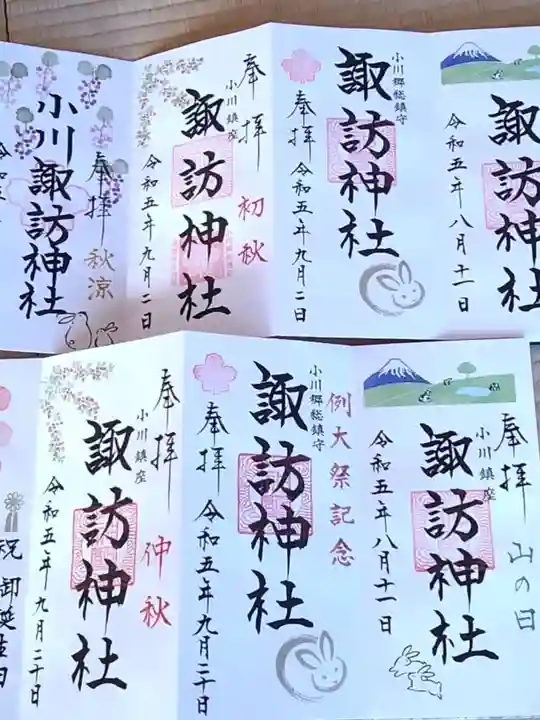 諏訪神社
令和五年八月十一日
小川郷総鎮守
諏訪神社
奉拝
令和五年九月二日
奉拝
初秋
小川鎮座
諏訪神社
令和五年九月二日
奉拝
秋涼
小川諏訪神社
奉拝
山の日
小川鎮座
諏訪神社
令和五年八月十一日
例大祭記念
小川郷総鎮守
諏訪神社
奉拝
令和五年九月二十日
奉拝
仲秋
小川鎮座
諏訪神社
令和五年九月二十日
祝 御誕生日